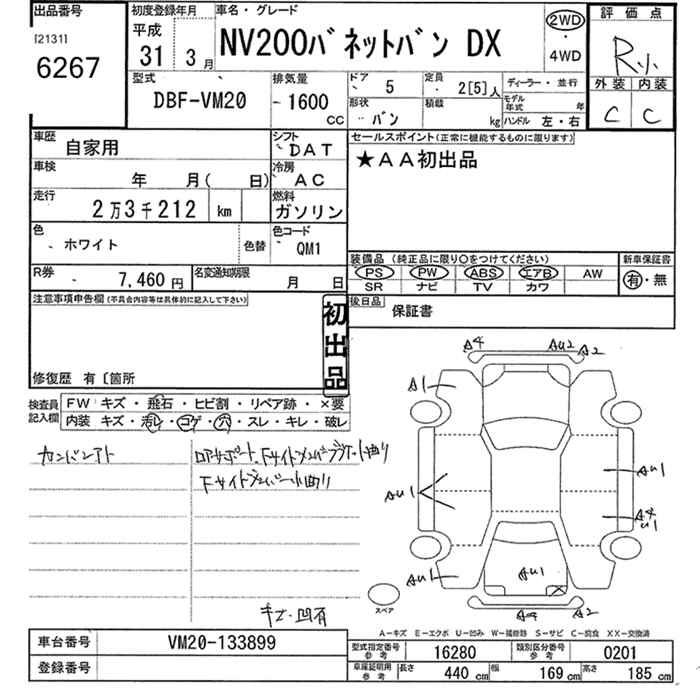 出品番号
[2131]
6267
初度登録年月
平成
31 年 3 月
車名・グレード
NV200バネットバン DX
2WD
・
4WD
評価点
R小
外装 内装
C C
型式
DBF-VM20
排気量
1600
CC
ドア
5
形状
バン
定員
2[5]人
積載
kg
ディーラー・並行
モデル年式 年
ハンドル 左・右
車歴
自家用
シフト
DAT
車検
年 月( 日)
冷房
AC
走行
2万3千212 km
燃料
ガソリン
色
ホワイト
色替
色コード
QM1
R券
7,460円
名変通知期限
月 日
セールスポイント(正常に機能するものに限ります)
★AA初出品
装備品 (純正品に限り○をつけてください)
PS PW ABS エアB AW
SR ナビ TV カワ
新車保証書
有・無
後日品
保証書
注意事項申告欄(不具合内容等は具体的に記入して下さい)
初出品
修復歴 有〔箇所
検査員記入欄
FW キズ・飛石・ヒビ割・リペア跡・×要
内装 キズ・汚レ・コゲ・穴・スレ・キレ・破レ
カンバンアト
Fサイドメンバー小曲り
キズ・凹有
A4 AU2 A2
A1
AU1
AU1
A4
U1
AU1
AU1
A4 A2
スペア
A-キズ E-エクボ U-凹み W-補修跡 S-サビ C-腐食 XX-交換済
車台番号
VM20-133899
登録番号
型式指定番号
参考
16280
類別区分番号
参考
0201
車庫証明用
参考
長さ 440 cm 幅 169 cm 高さ 185 cm